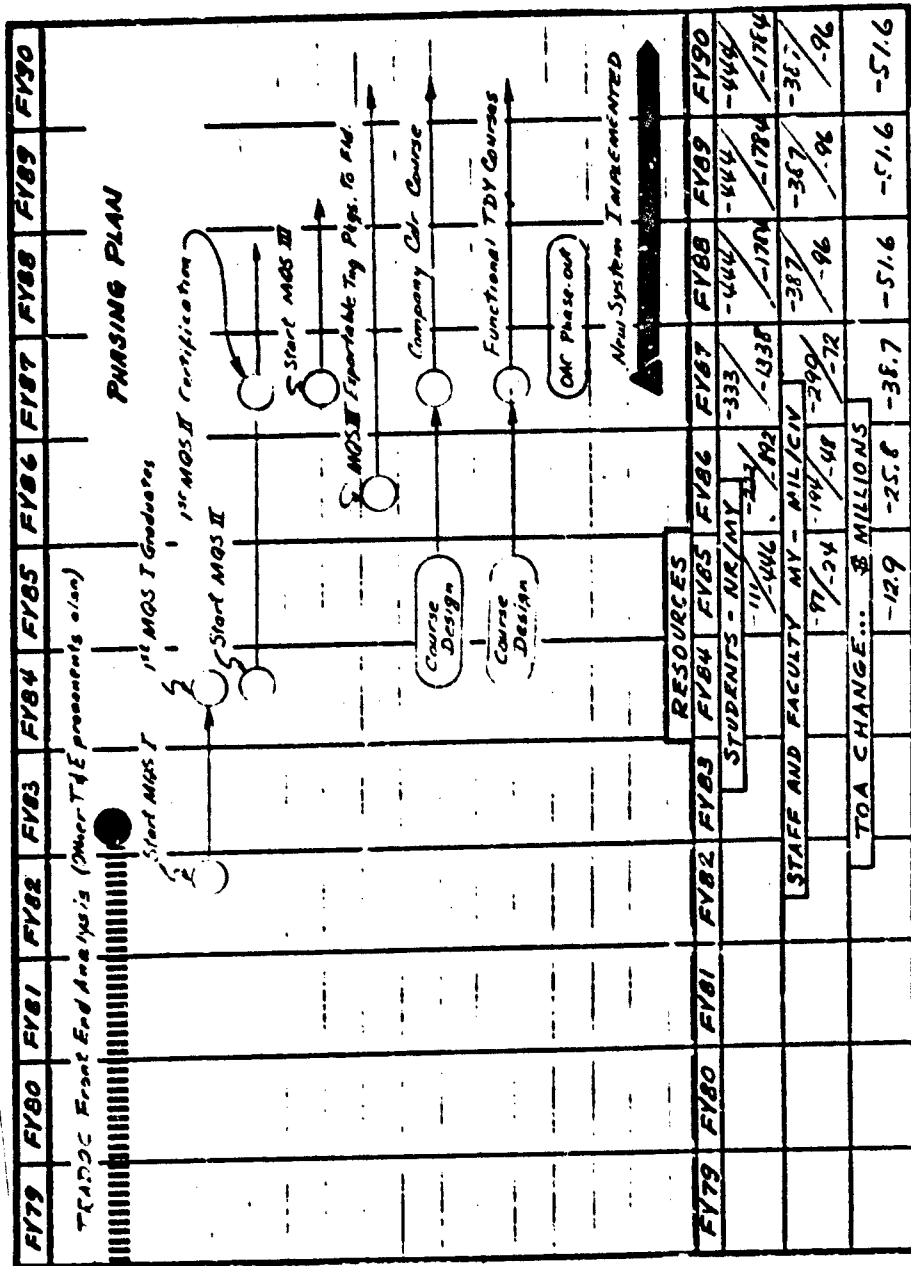 FY79 FY80 FY81 FY82 FY83 FY84 FY85 FY86 FY87 FY88 FY89 FY90
TRADOC Front End Analysis (Other T&E proponents plan)
PHASING PLAN
Start MQS I
1st MQS I Graduates
1st MQS II Certification
Start MQS II
Start MQS III
MQS II Exportable Tng Pkgs. To Fld.
Course Design
Company Cdr Course
Course Design
Functional TDY Courses
OAC Phase-out
New System Implemented
RESOURCES
FY79 FY80 FY81 FY82 FY83 FY84 FY85 FY86 FY87 FY88 FY89 FY90
STUDENTS - NR/MY
-111/-446 /-892 -333/-1338 -444/-1784 -444/-1784 -444/-1784
STAFF AND FACULTY MY - MIL/CIV
-97/-24 -194/-48 -290/-72 -387/-96 -387/-96 -387/-96
TOA CHANGE... $ MILLIONS
-12.9 -25.8 -38.7 -51.6 -51.6 -51.6